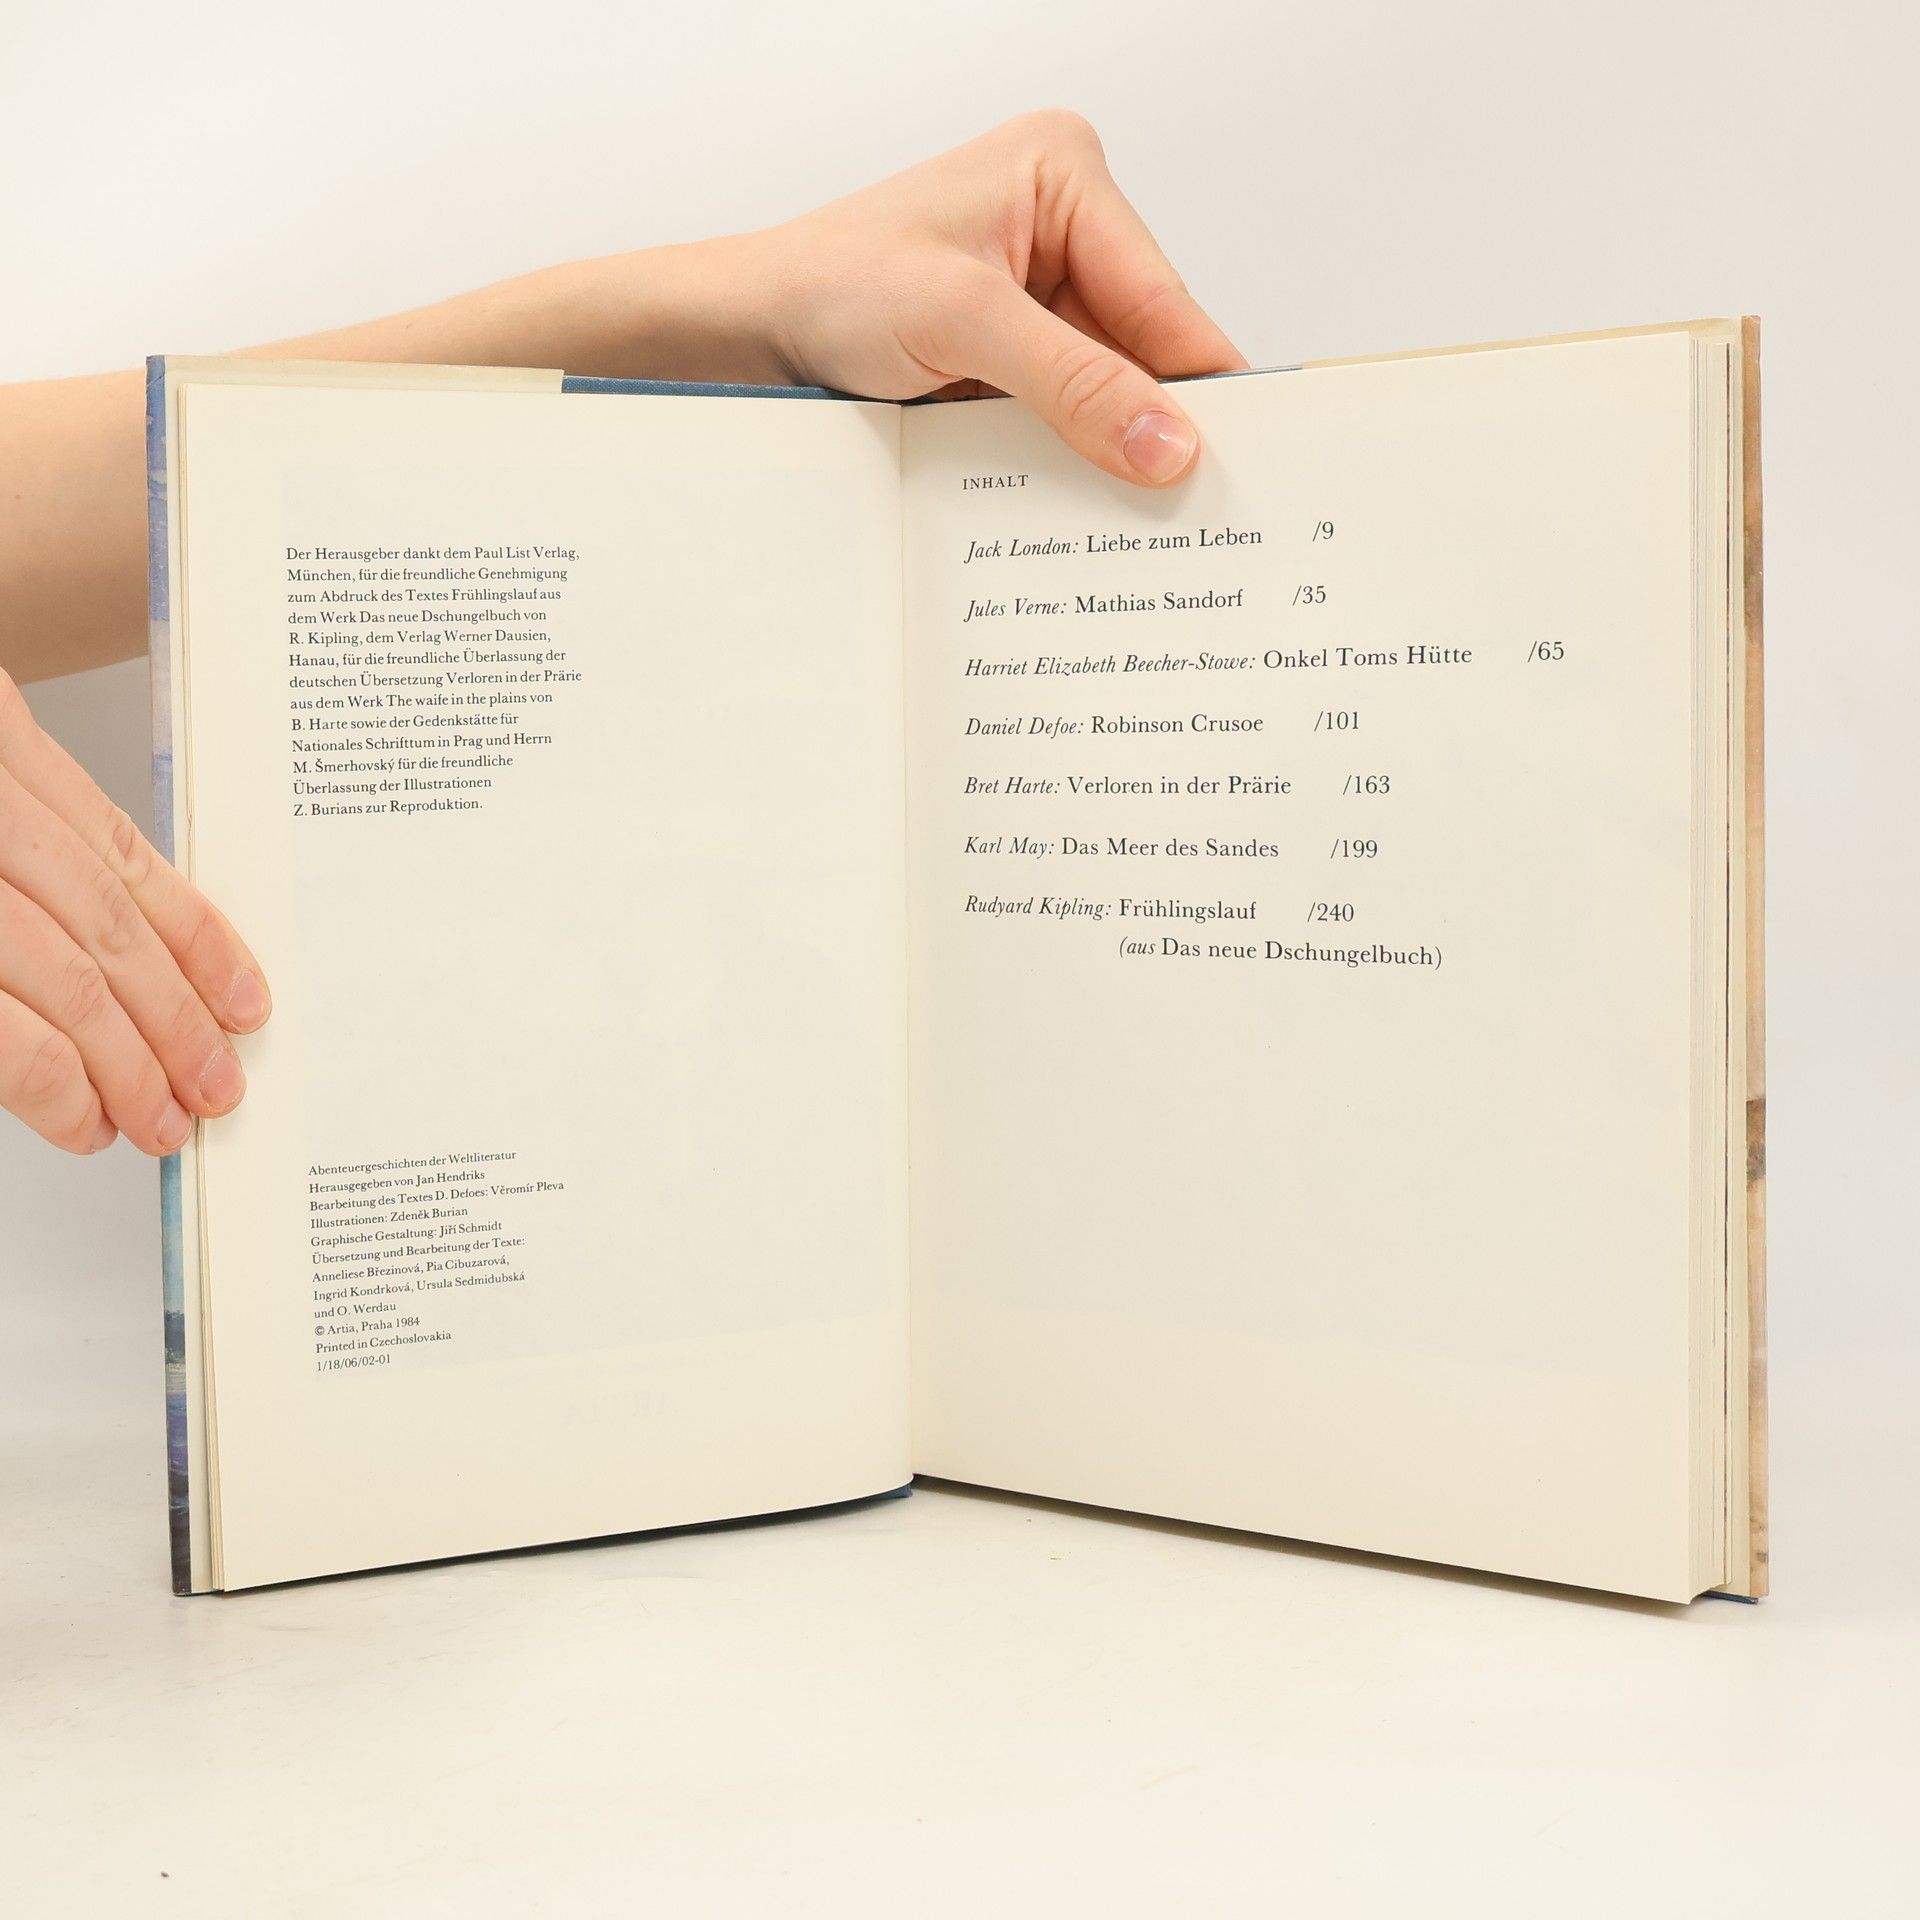 Der Herausgeber dankt dem Paul List Verlag,
München, für die freundliche Genehmigung
zum Abdruck des Textes Frühlingslauf aus
dem Werk Das neue Dschungelbuch von
R. Kipling, dem Verlag Werner Dausien,
Hanau, für die freundliche Überlassung der
deutschen Übersetzung Verloren in der Prärie
aus dem Werk The waife in the plains von
B. Harte sowie der Gedenkstätte für
Nationales Schrifttum in Prag und Herrn
M. Šmerhovský für die freundliche
Überlassung der Illustrationen
Z. Burians zur Reproduktion.
Abenteuergeschichten der Weltliteratur
Herausgegeben von Jan Hendriks
Bearbeitung des Textes D. Defoes: Věromír Pleva
Illustrationen: Zdeněk Burian
Graphische Gestaltung: Jiří Schmidt
Übersetzung und Bearbeitung der Texte:
Anneliese Březinová, Pia Cibuzarová,
Ingrid Kondrková, Ursula Sedmidubská
und O. Werdau
© Artia, Praha 1984
Printed in Czechoslovakia
1/18/06/02-01
INHALT
Jack London: Liebe zum Leben /9
Jules Verne: Mathias Sandorf /35
Harriet Elizabeth Beecher-Stowe: Onkel Toms Hütte /65
Daniel Defoe: Robinson Crusoe /101
Bret Harte: Verloren in der Prärie /163
Karl May: Das Meer des Sandes /199
Rudyard Kipling: Frühlingslauf /240
(aus Das neue Dschungelbuch)